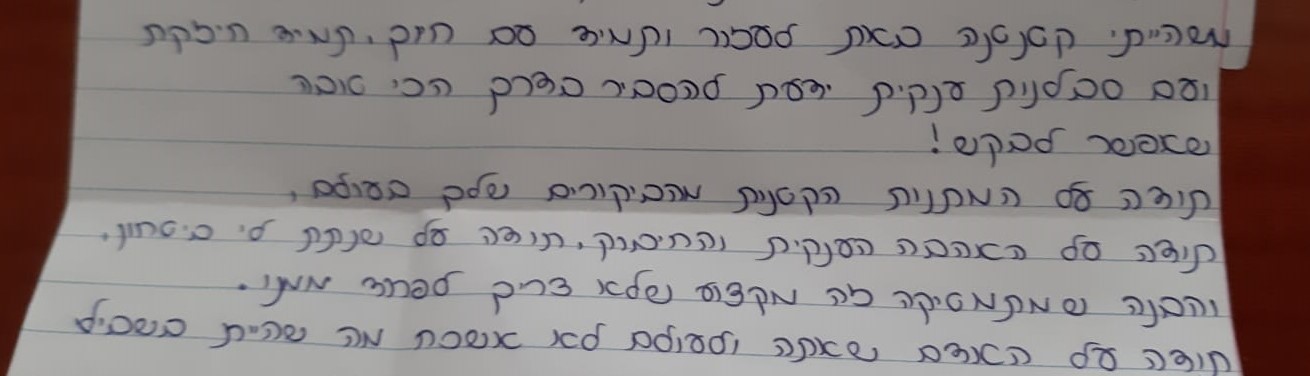 משהייתי קטנטנה באת לעזור ותמיד עם חיוך, תמיד חיבקת
ועם סבלנות ענקית ידעת להסביר בדרך הכי טובה
שאפשר לבקש!
תודה על המתנות הקטנות מהביקורים שלך בעולם,
תודה על האהבה הענקית והחיבוק, תודה על שנתת לי ביטחון,
והבנה שמתמטיקה זה מקצוע שלא צריך לפחד ממנו.
תודה על האדם שאתה ולעולם לא אשכח מה שהיית בשביל